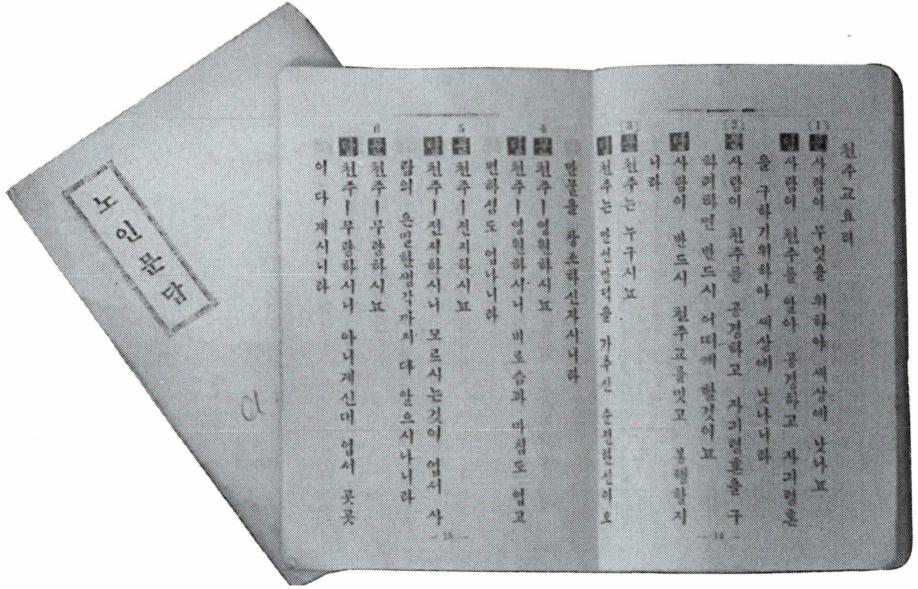 노인문답
천주교요리
(1)
문 사람이 무엇을 위하야 세상에 낫나뇨
답 사람이 천주를 알아 공경하고 자긔령혼
을 구하기위하야 세상에 낫나니라
(2)
문 사람이 천주를 공경하고 자긔령혼을 구
하려하면 반드시 어떠케 할것이뇨
답 사람이 반드시 천주교를밋고 봉행할지
니라
(3)
문 천주는 누구시뇨
답 천주는 만선만덕을 가추신 순전한신이오
만물을 창조하신자시니라
4
문 천주ㅣ영원하시뇨
답 천주ㅣ영원하시니 비로슴과 마침도 업고
변하심도 업나니라
5
문 천주ㅣ전지하시뇨
답 천주ㅣ전지하시니 모르시는것이 업서 사
람의 은밀한생각까지 다 알으시나니라
6
문 천주ㅣ무량하시뇨
답 천주ㅣ무량하시니 아니계신대 업서 곳곳
이 다 계시니라
— 14 —
— 15 —